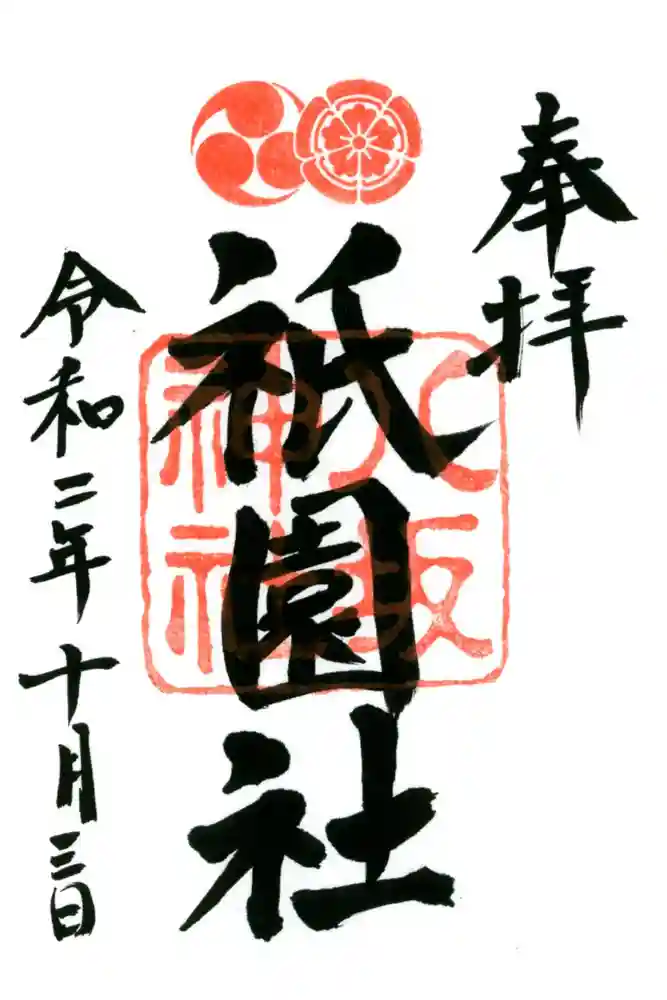 奉拝
祇園社
八坂
神社
令和二年十月三日